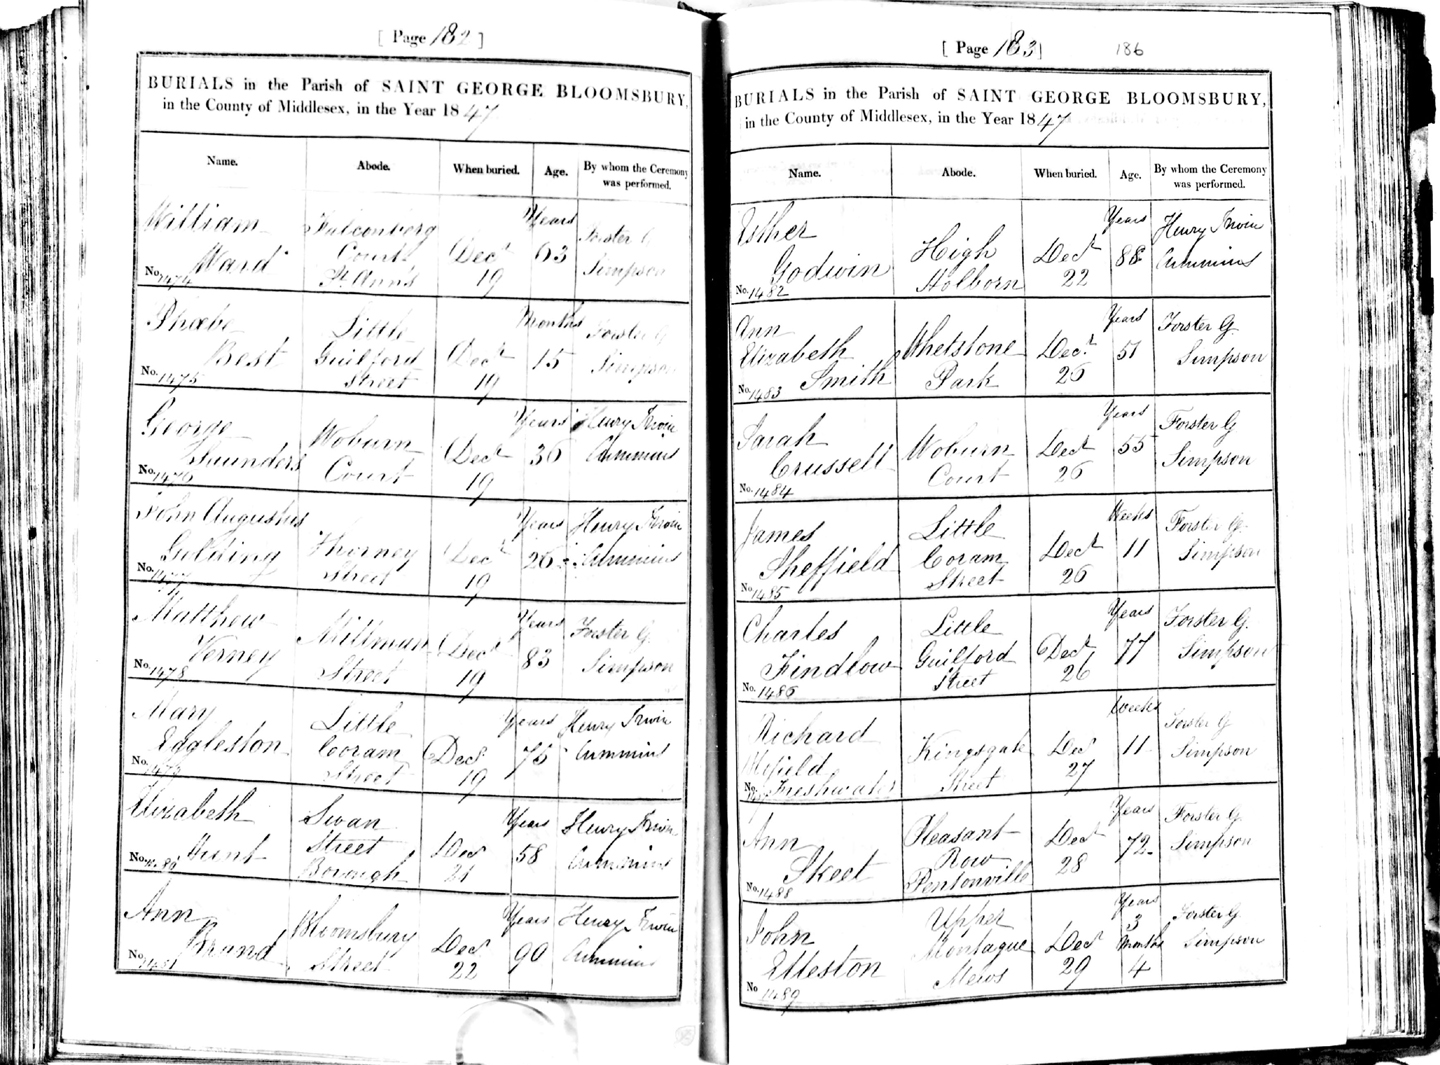 [ Page 182 ]
BURIALS in the Parish of SAINT GEORGE BLOOMSBURY,
in the County of Middlesex, in the Year 1847
Name. Abode. When buried. Age. By whom the Ceremony was performed.
William Ward
No. 1474
Falconberg Court St Ann's
Decr 19
Years 63
Forster G Simpson
Phoebe Best
No. 1475
Little Guilford Street
Decr 19
Months 15
Forster G Simpson
George Saunders
No. 1476
Woburn Court
Decr 19
Years 36
Henry Irwin Cummins
John Augustus Golding
No. 1477
Thorney Street
Decr 19
Years 26
Henry Irwin Cummins
Matthew Verney
No. 1478
Millman Street
Decr 19
Years 83
Forster G. Simpson
Mary Eggleston
No. 1479
Little Coram Street
Decr 19
Years 75
Henry Irwin Cummins
Elizabeth
No. 1480
Swan Street Borough
Decr 21
Years 58
Henry Irwin Cummins
Ann Brund
No. 1481
Bloomsbury Street
Decr 22
Years 90
Henry Irwin Cummins
[ Page 183 ]
186
BURIALS in the Parish of SAINT GEORGE BLOOMSBURY,
in the County of Middlesex, in the Year 1847
Name. Abode. When buried. Age. By whom the Ceremony was performed.
Esther Godwin
No. 1482
High Holborn
Decr 22
Years 88
Henry Irwin Cummins
Ann Elizabeth Smith
No. 1483
Whetstone Park
Decr 26
Years 51
Forster G. Simpson
Sarah Crussell
No. 1484
Woburn Court
Decr 26
Years 55
Forster G Simpson
James Sheffield
No. 1485
Little Coram Street
Decr 26
Weeks 11
Forster G. Simpson
Charles Findlow
No. 1486
Little Guilford Street
Decr 26
Years 77
Forster G. Simpson
Richard Freshwater
No.
Kingsgate Street
Decr 27
Weeks 11
Forster G Simpson
Ann Skeet
No. 1488
Pleasant Row Pentonville
Decr 28
Years 72
Forster G. Simpson
John Elleston
No 1489
Upper Montague Mews
Decr 29
Years 3 Months 4
Forster G Simpson